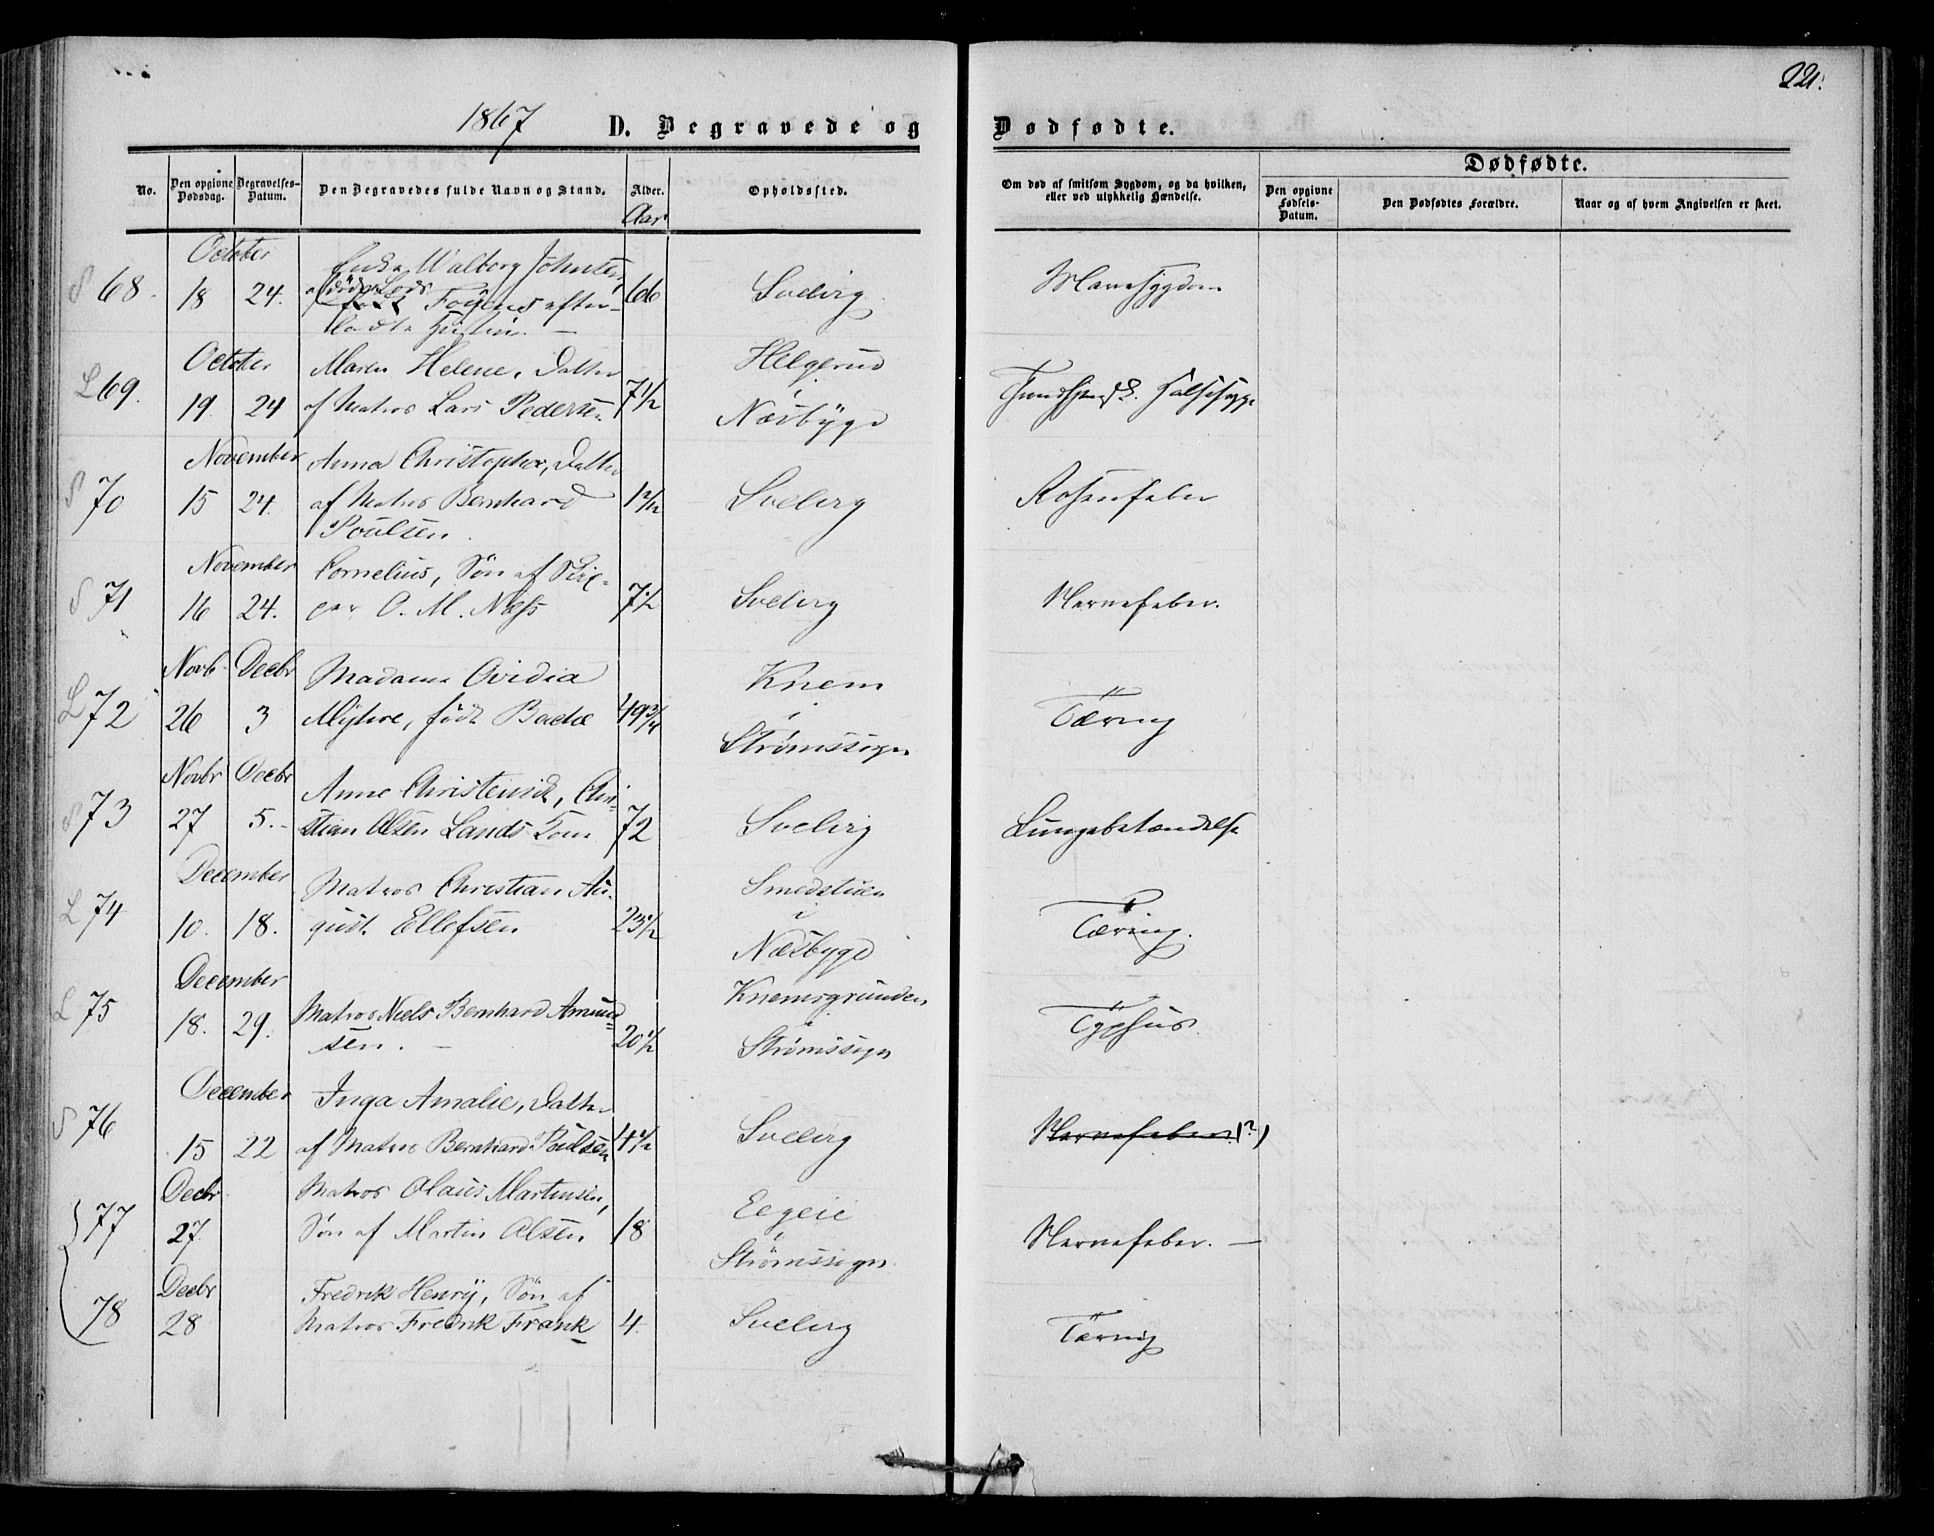 221.
1867 D. Begravede og Dødfødte.
No.
Den opgivne Dødsdag.
Begravelses-Datum.
Den Begravedes fulde Navn og Stand.
Alder.
Aar
Opholdssted.
Om død af smitsom Sygdom, og da hvilken,
eller ved ulykkelig Hændelse.
Dødfødte.
Den opgivne Fødsels-Datum.
Den Dødfødtes Forældre.
Naar og af hvem Angivelsen er skeet.
October
S 68. 18 24. Walborg Johnsen,
Føyens efter-
ladte Hustru. —
66 Svelvig Mavesygdom
October
L 69. 19. 24 Maren Helene, Datter
af Matros Lars Pedersen
7 1/2 Helgerud
i
Næsbygd
Halssyge
November
S 70 15 24. Anna Christopha, Datter
af Matros Bernhard
Poulsen.
Svelvig Rosenfeber
November
S 71 16 24. Cornelius, Søn af
O. M. Næss
7 1/2 Svelvig Nervefeber.
Novb. Decbr
L 72 26 3 Madame Ovidia
Myhre, født Bache
49 3/4 Knem
i
Strømssogn
Tæring
Novbr Decbr
S 73 27 5. Anne Christensd., Chri-
stian Olsen Lands Kone
72 Svelvig Lungebetændelse
December
L 74 10. 18. Matros Christian Au-
gust Ellefsen
23 1/2 Smedstuen
i
Næsbygd
Tæring.
December
L 75 18. 29. Matros Niels Bernhard Amund-
sen. —
20 1/2 Knemsgrunden
i
Strømssogn
Typhus.
December
S 76 15 22 Inga Amalie, Datter
af Matros Bernhard Poulsen
4 1/2 Svelvig Nervefeber (?)
Decbr
77 27. Matros Olaus Martinsen,
Søn af Martin Olsen
18 Eegeie
i
Strømssogn.
Nervefeber. —
Decbr
78 28 Fredrik Henry, Søn af
Matros Fredrik Frank
4. Svelvig Tæring